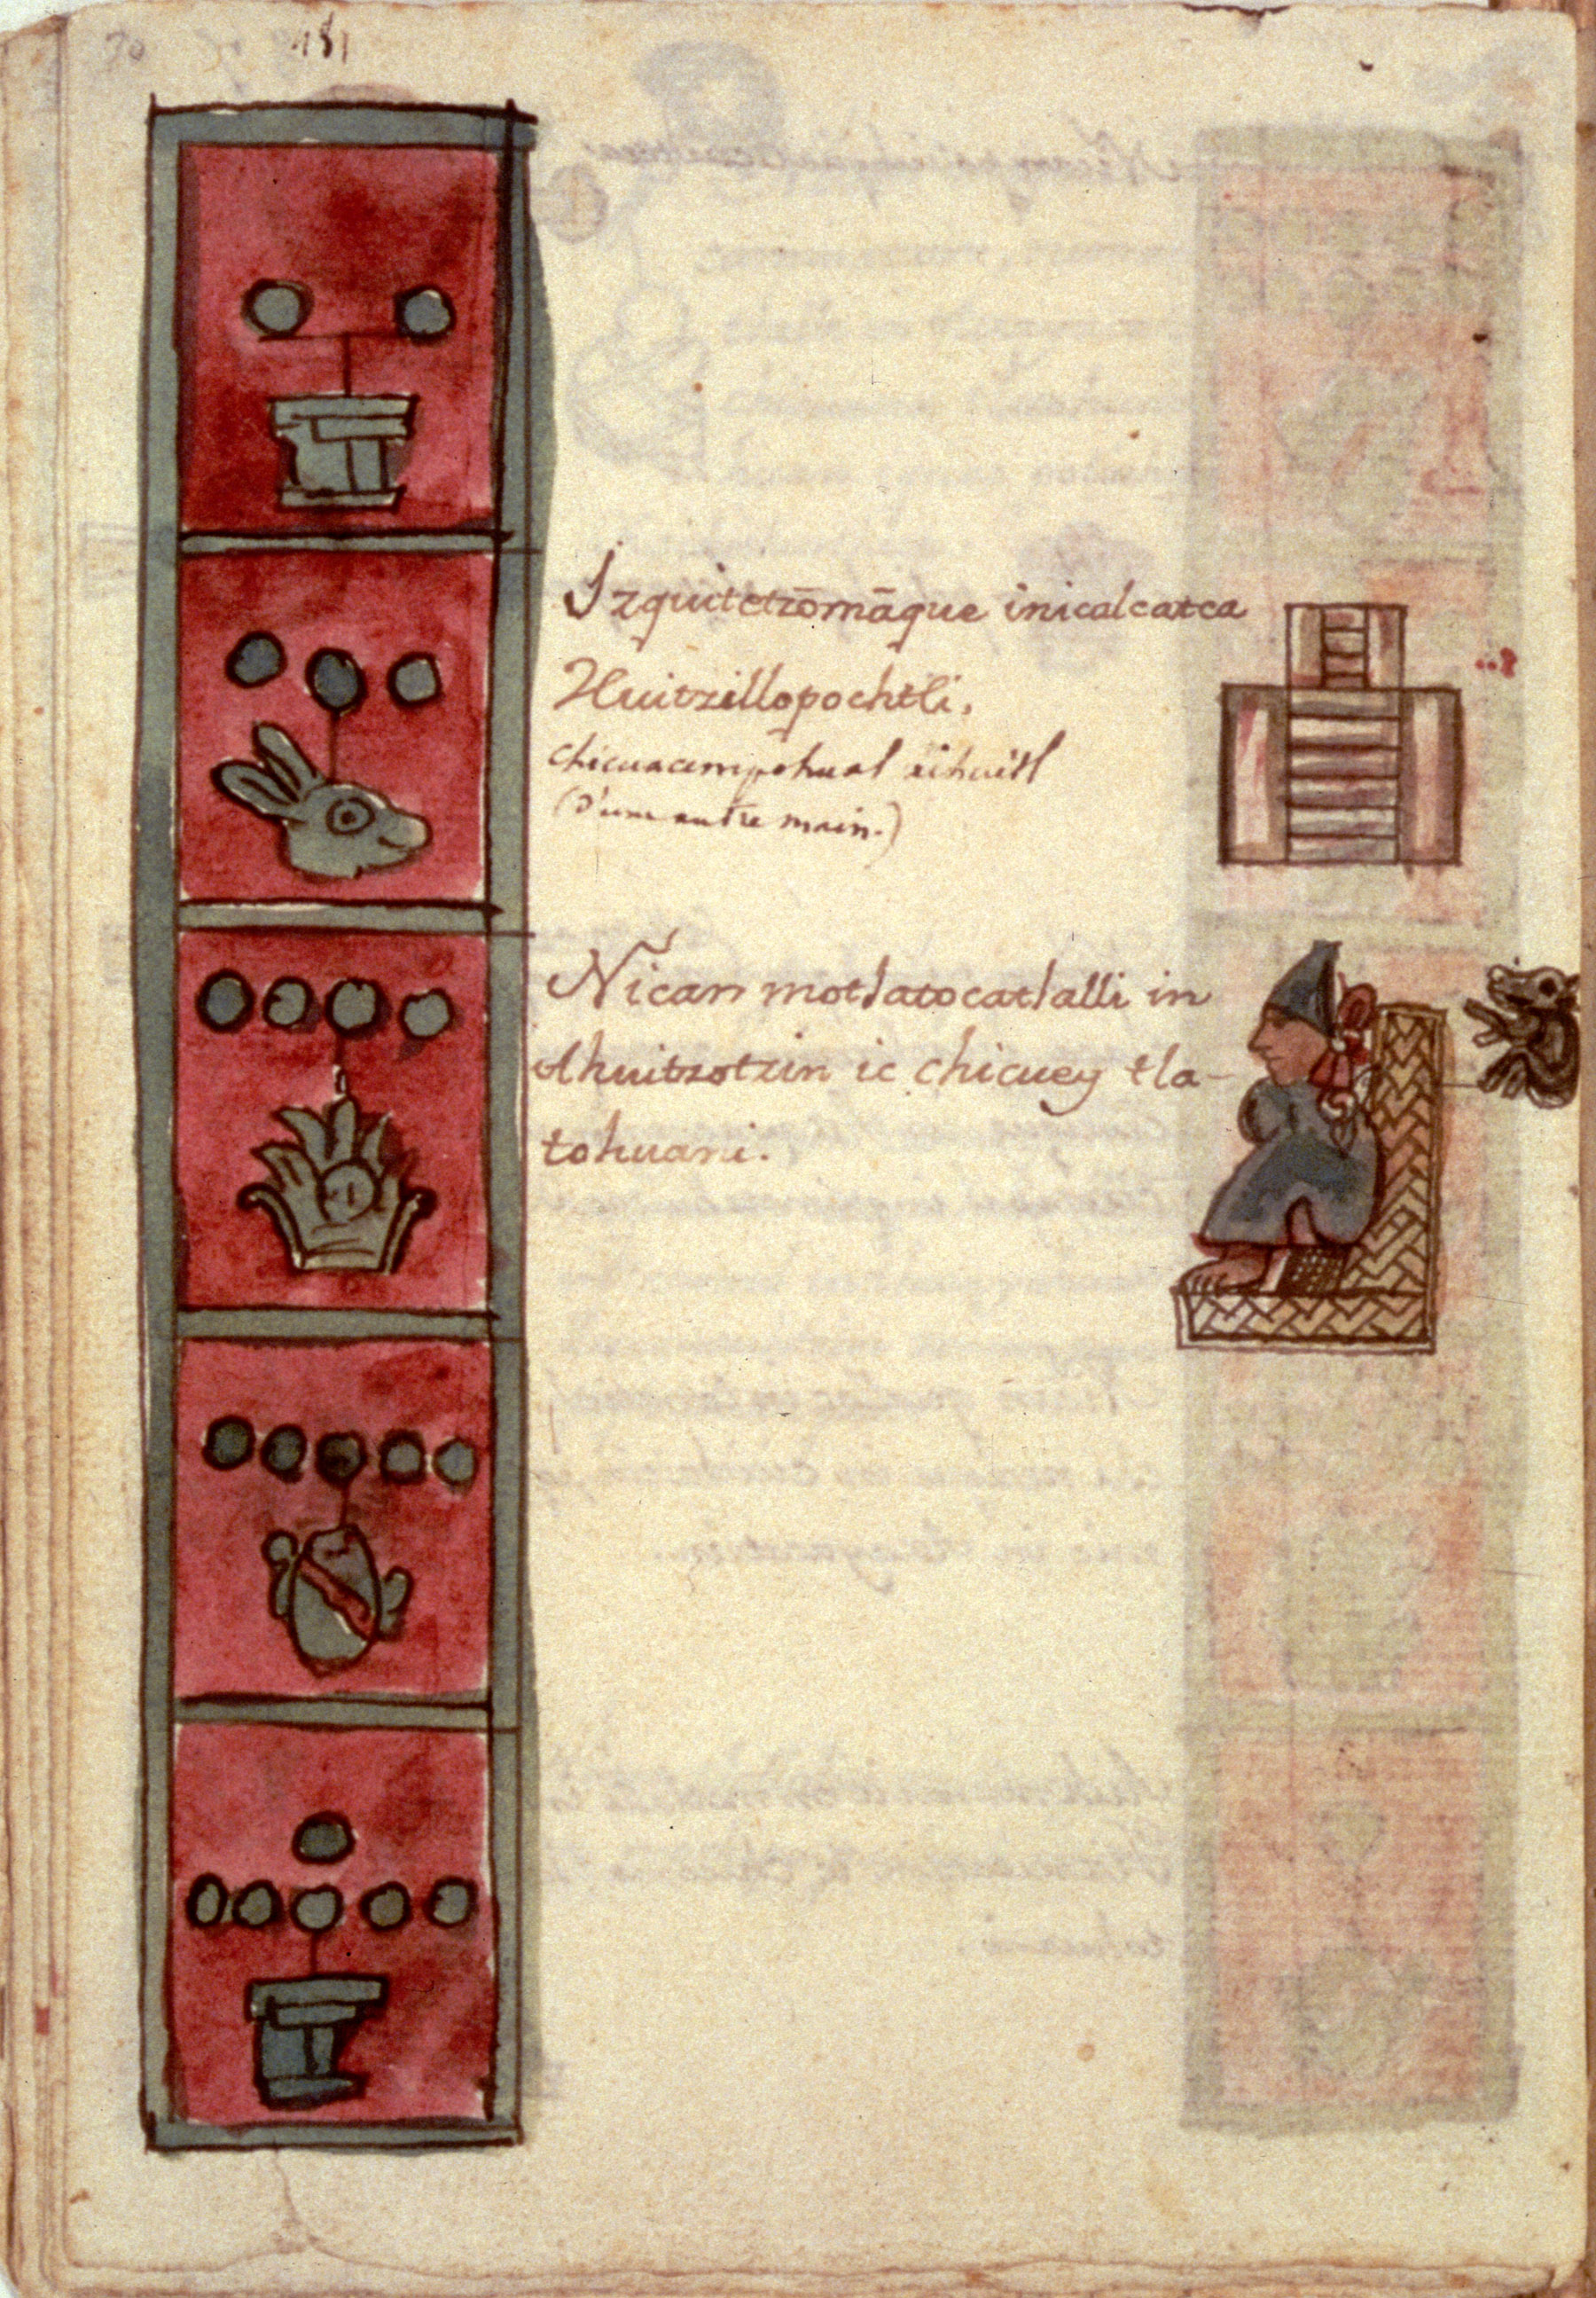 30
181
Izquitetzōmāque inicalcatca
Huitzillopochtli,
chicuacempohual xihuitl
(d'une autre main.)
Nican motlatocatlalli in
Ahuitzotzin ic chicuey tla-
tohuani.